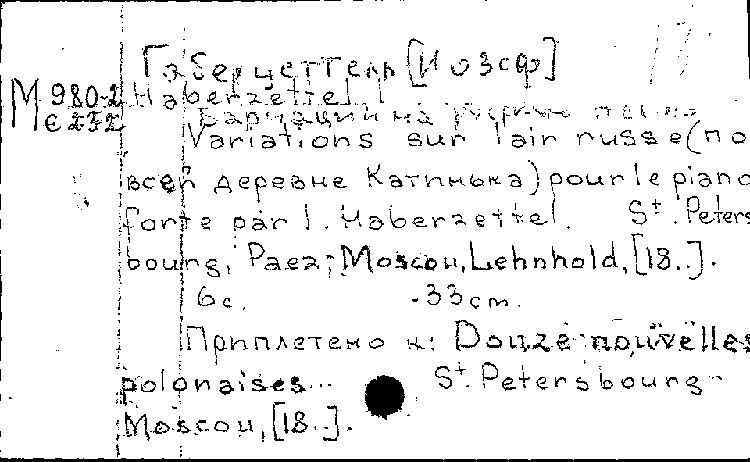 Габерцеттель [Иозеф]
М 980-2 Haberzettel I
е 252 Вариации на русскую песню
Variations sur l'air russe (по
всей деревне Катинька) pour le piano
forte par I. Haberzettel. St. Peters
bourg, Paez; Moscou, Lehnhold, [18..].
6 с. 33 cm.
Приплетено к: Douze nouvelles
polonaises... St. Petersbourg-
Moscou, [18..].